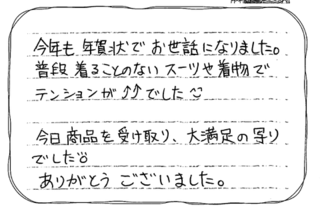 今年も年賀状でお世話になりました。
普段着ることのないスーツや着物で
テンションが⤴⤴でした☺
今日商品を受け取り、大満足の写り
でした☺
ありがとうございました。